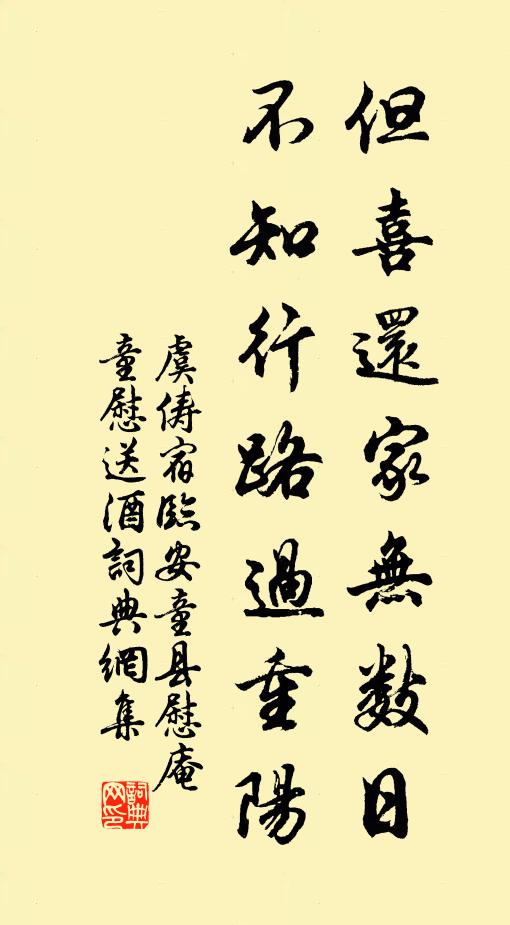 但喜還家無數日
不知行路過重陽
虞儔宿臨安童县慰庵
童慰送酒詞典網集
詞典网印